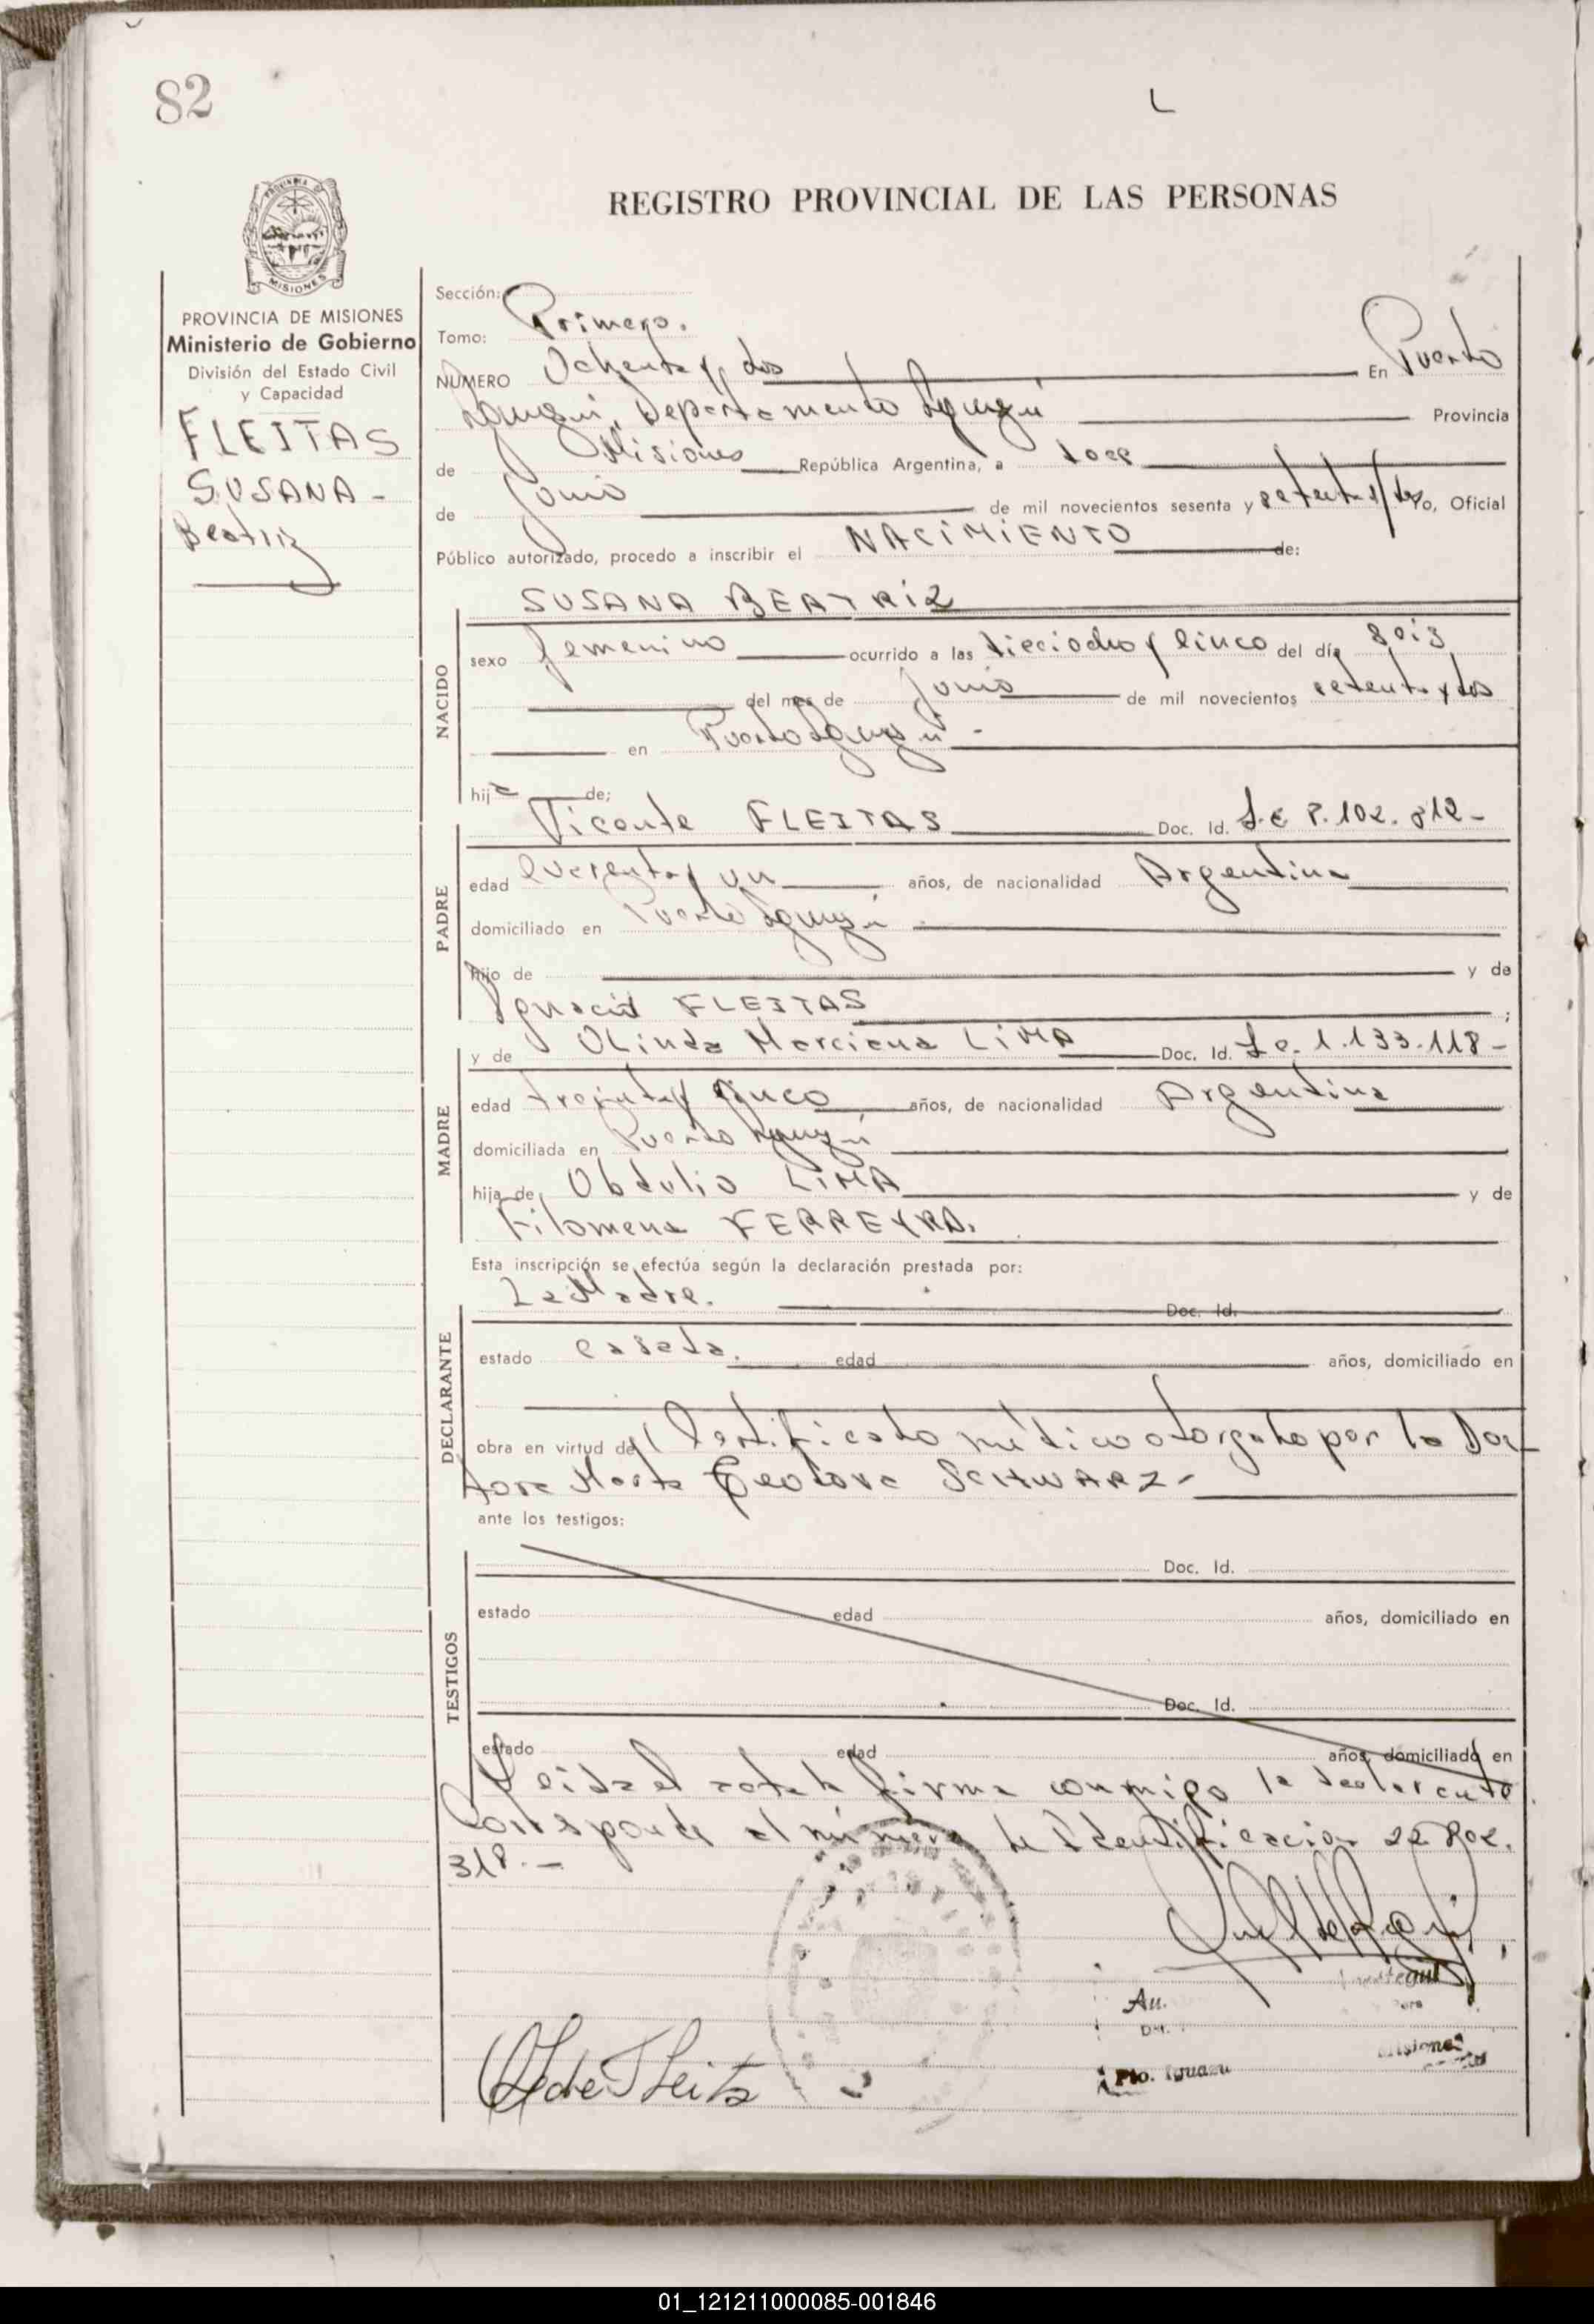 82
L
REGISTRO PROVINCIAL DE LAS PERSONAS
MISIONES
PROVINCIA DE MISIONES
Ministerio de Gobierno
División del Estado Civil
y Capacidad
FLEITAS
SUSANA -
Beatriz
Sección:
Tomo: Primero.
NUMERO Ochenta y dos En Puerto
Iguazú, Departamento Iguazú Provincia
de Misiones República Argentina, a doce
de Junio de mil novecientos sesenta y setenta y dos Yo, Oficial
Público autorizado, procedo a inscribir el NACIMIENTO de:
NACIDO
SUSANA BEATRIZ
sexo femenino ocurrido a las dieciocho y cinco del día seis
del mes de Junio de mil novecientos setenta y dos
en Puerto Iguazú -
hija de;
PADRE
Vicente FLEITAS Doc. Id. L.E 7.102.812-
edad cuarenta y un años, de nacionalidad Argentina
domiciliado en Puerto Iguazú
hijo de y de
Ignacia FLEITAS ;
MADRE
y de OLinda Marciana LIMA Doc. Id. L.C. 1.133.118-
edad treinta y cinco años, de nacionalidad Argentina
domiciliada en Puerto Iguazú
hija de Obdulio LIMA y de
Filomena FERREYRA.
Esta inscripción se efectúa según la declaración prestada por:
DECLARANTE
La Madre. Doc. Id.
estado casada. edad años, domiciliado en
obra en virtud del Certificado médico otorgado por la Doc-
tora Marta Teodora SCHWARZ-
ante los testigos:
TESTIGOS
Doc. Id.
estado edad años, domiciliado en
Doc. Id.
estado edad años, domiciliado en
Leida el acta la firma conmigo la declarante
Corresponde al número de Identificación 22.802.
318.-
Au.
Pto. Iguazu Misiones
01_121211000085-001846